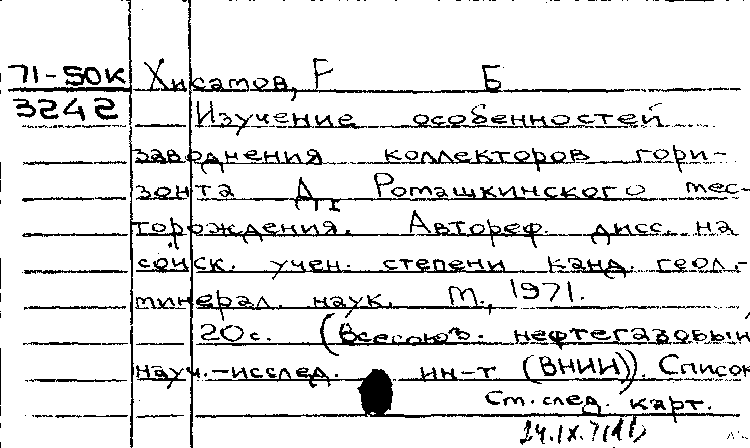 71-50к Хисатов, Г Б
3242 Изучение особенностей
заводнения коллекторов гори-
зонта Д₁ Ромашкинского мес-
торождения. Автореф. дисс. на
соиск. учен. степени канд. геол.-
минерал. наук. М., 1971.
20с. (Всесоюз. нефтегазовый
науч.-исслед. ин-т (ВНИИ)). Список
Ст. след. карт.